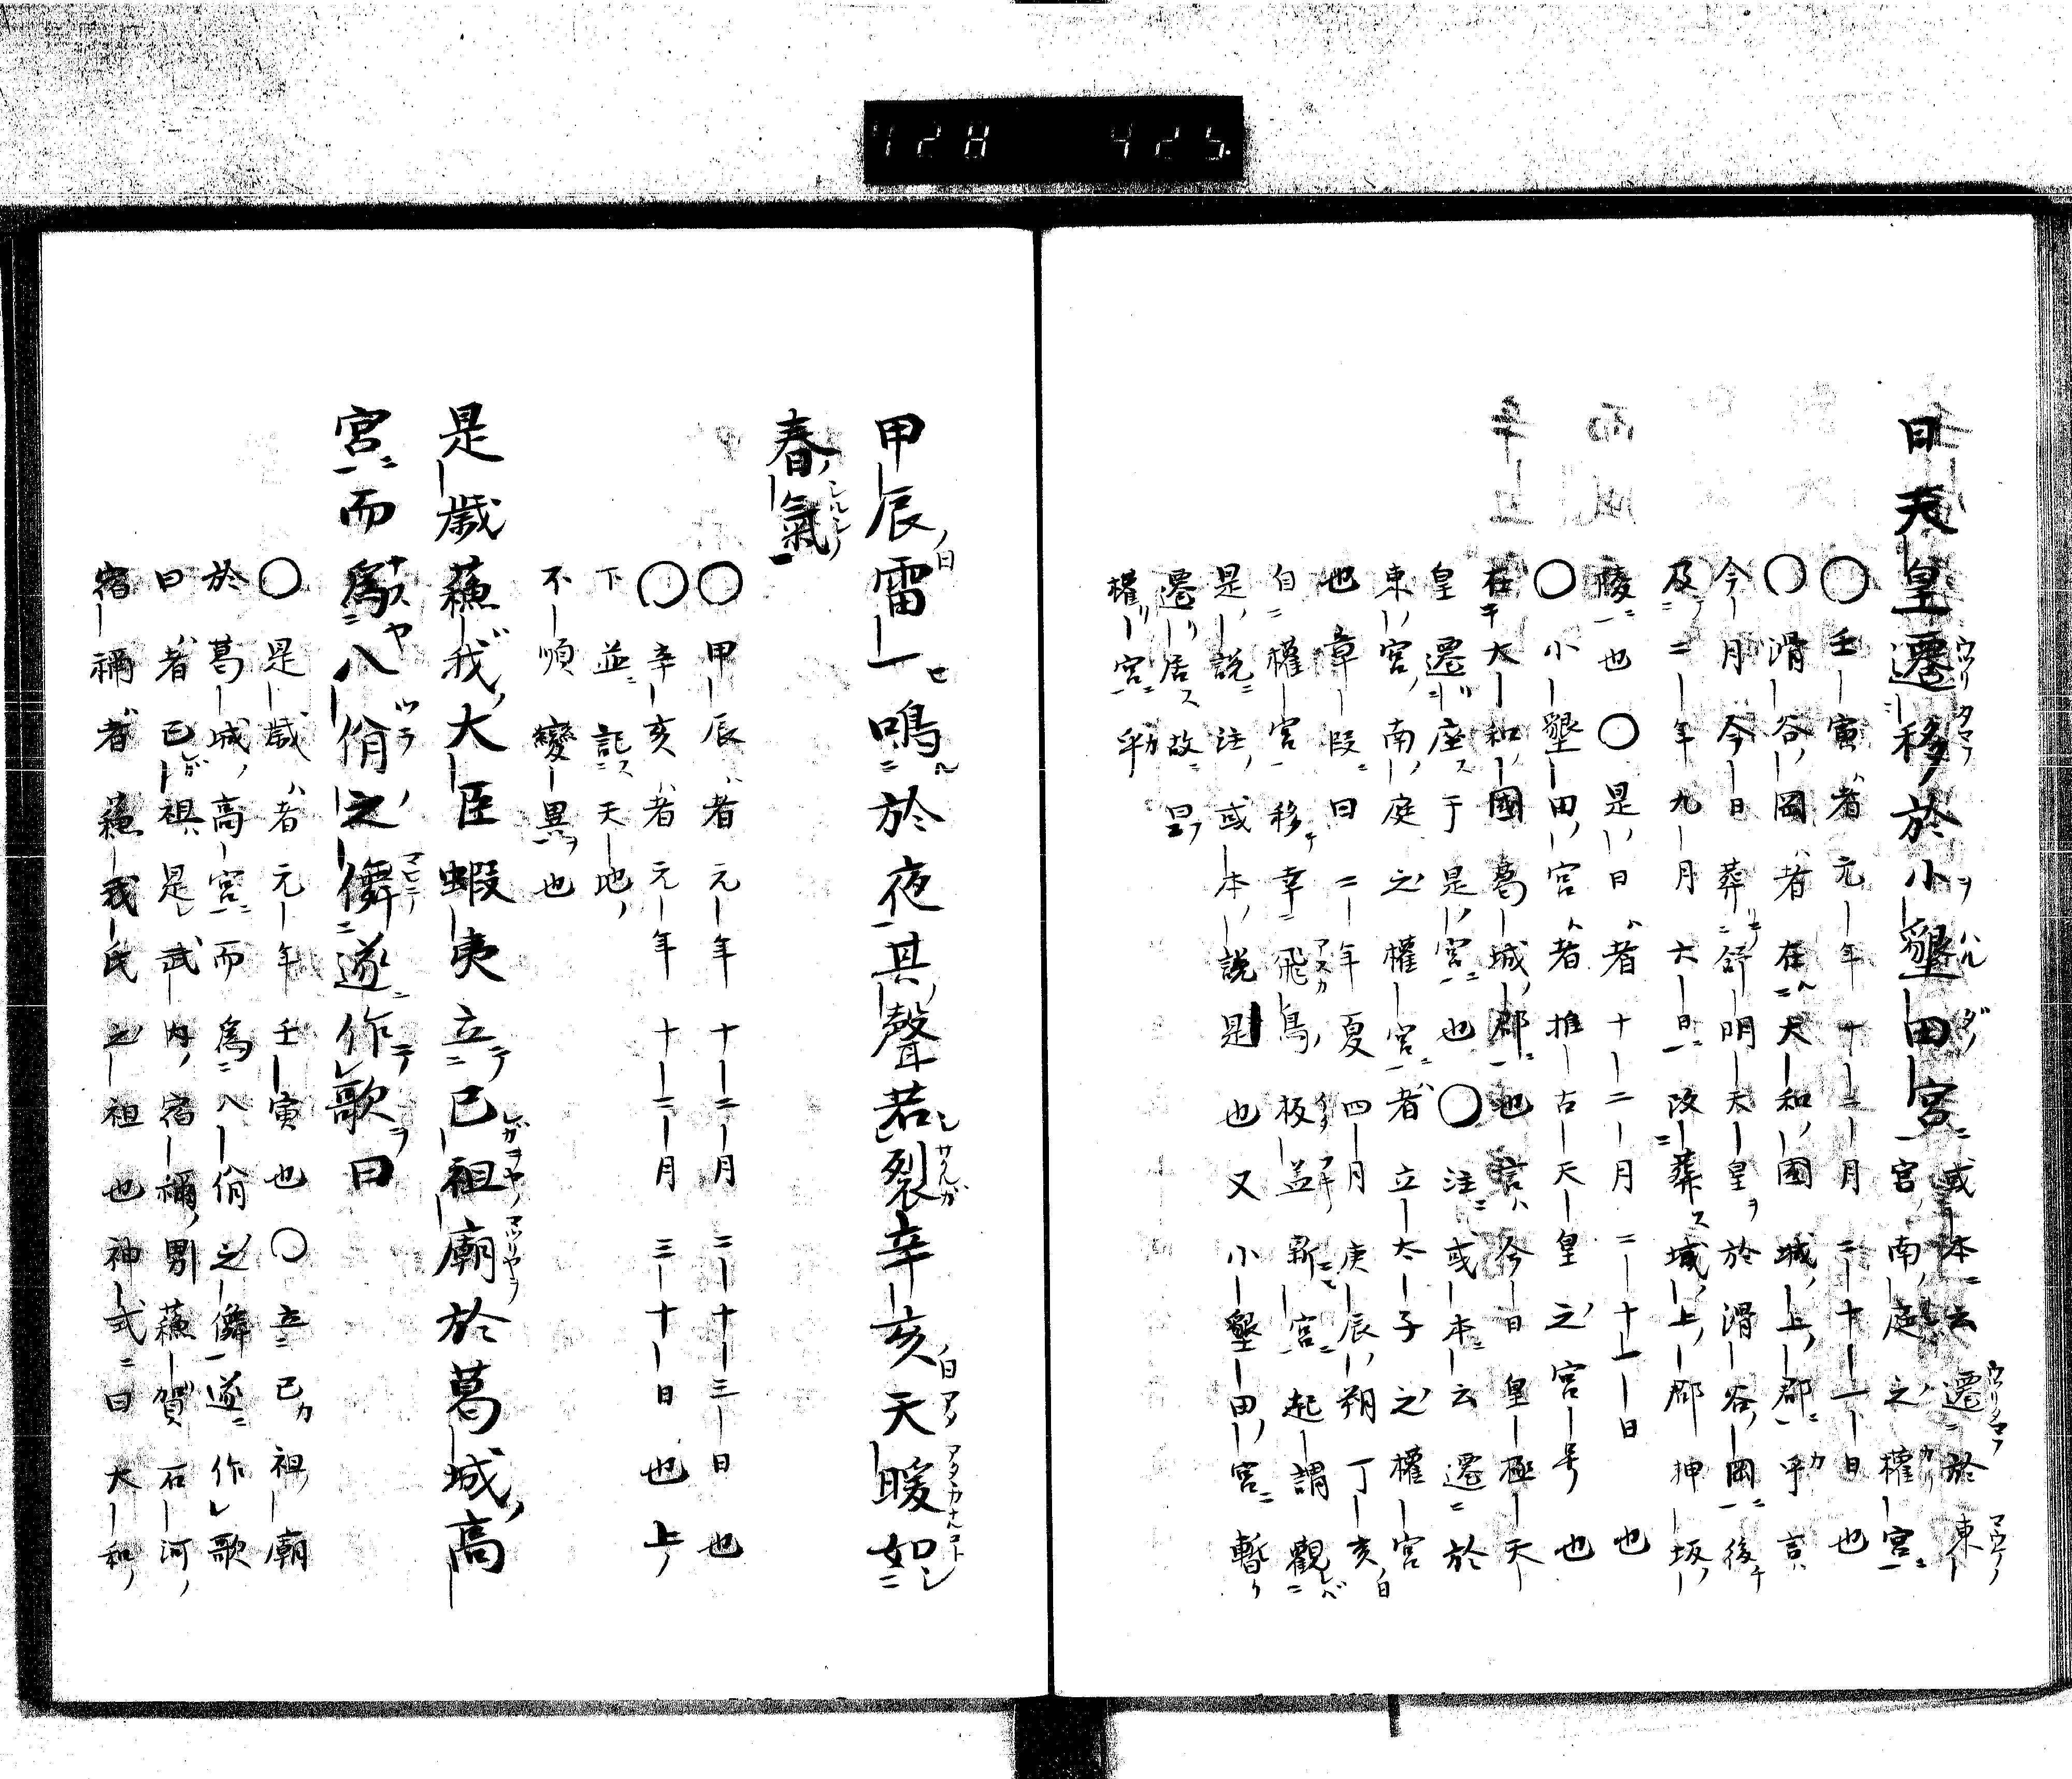 日天皇遷移於小墾田宮 或本云遷於東
宮南庭之權宮
○壬寅者元年十二月二十一日也
○滑谷岡者在大和國城上郡乎言
今月今日葬舒明天皇於滑谷岡後
及二年九月六日改葬城上郡押坂
陵也○是日者十二月二十一日也
○小墾田宮者推古天皇之宮号也
在大和國葛城郡也言今日皇極天
皇遷座于是宮也○注或本云遷於
東宮南庭之權宮者立太子之權宮
也章段曰二年夏四月庚辰朔丁亥
自權宮移幸飛鳥板蓋新宮起謂觀
是說注或本說是也又小墾田宮暫
遷居故曰
權宮乎
甲辰雷一鳴於夜其聲若裂辛亥天暖如
春氣
○甲辰者元年十二月二十三日也
○辛亥者元年十二月三十日也上
下並記天地
不順變異也
是歲蘓我大臣蝦夷立己祖廟於葛城高
宮而爲八佾之儛遂作歌曰
○是歲者元年壬寅也○立己祖廟
於葛城高宮而爲八佾之儛遂作歌
曰者己祖是武內宿禰男蘓賀石河
宿禰者蘓我氏之祖也神式曰大和
428 425